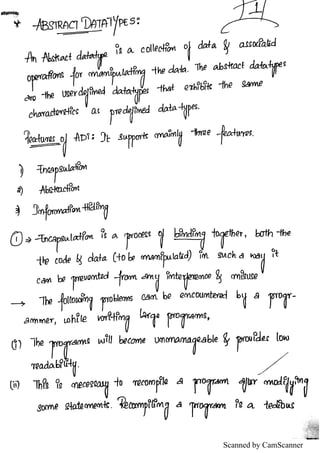 1
* ABSTRACT DATATYPES:
An Abstract datatype is a collection of data & associated
operations for manipulating the data. The abstract datatypes
are the userdefined datatypes that exhibits the same
characteristics as predefined data-types.
Features of ADT: It supports mainly three features.
1) Encapsulation
2) Abstraction
3) Information Hiding
① ⇒ Encapsulation is a process of binding together, both the
the code & data (to be manipulated) in such a way it
can be prevented from any interference & misuse
→ The following problems can be encountered by a progr-
ammer, while writing large programs,
(i) The programs will become unmanageable & provides low
readability.
(ii) This is necessary to recompile a program after modifying
some statements. Recompiling a program is a tedious
Scanned by CamScanner